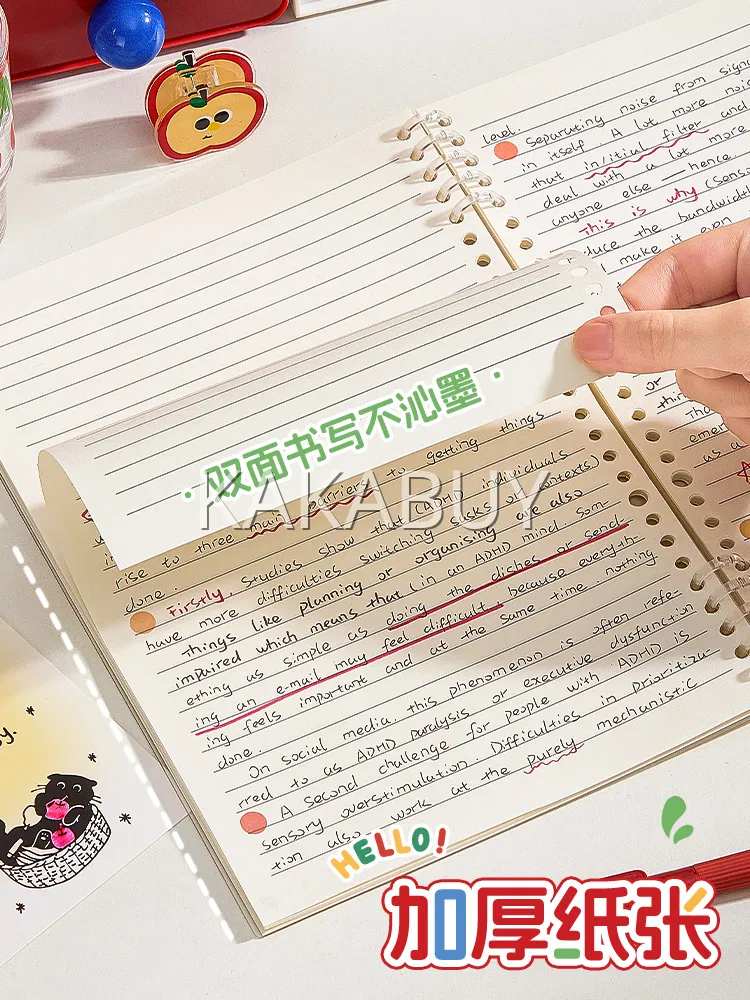 level.
Separating noise from
in itself. A lot more
that in/itial filter and
deal with a lot more
anyone else — hence.
This is why (senso
duce the bandwidth
make it even
双面书写不沁墨
KAKABUY
to getting things
rise to three main barriers
done.
Firstly, studies show that (ADHD individuals
have more difficulties switching tasks or contexts)
Things like planning or organising are also
impaired which means that (in an ADHD mind som-
ething as simple as doing the dishes or send-
ing an e-mail may feel difficult, because everyth-
ing feels important and at the same time nothing
done.
On social media, this phenomenon is often refe-
rred to as ADHD paralysis or executive dysfunction
A second challenge for people with ADHD is
sensory overstimulation. Difficulties in prioritiza-
tion also work at the purely mechanistic
or
emer
as a
y.
HELLO!
加厚纸张